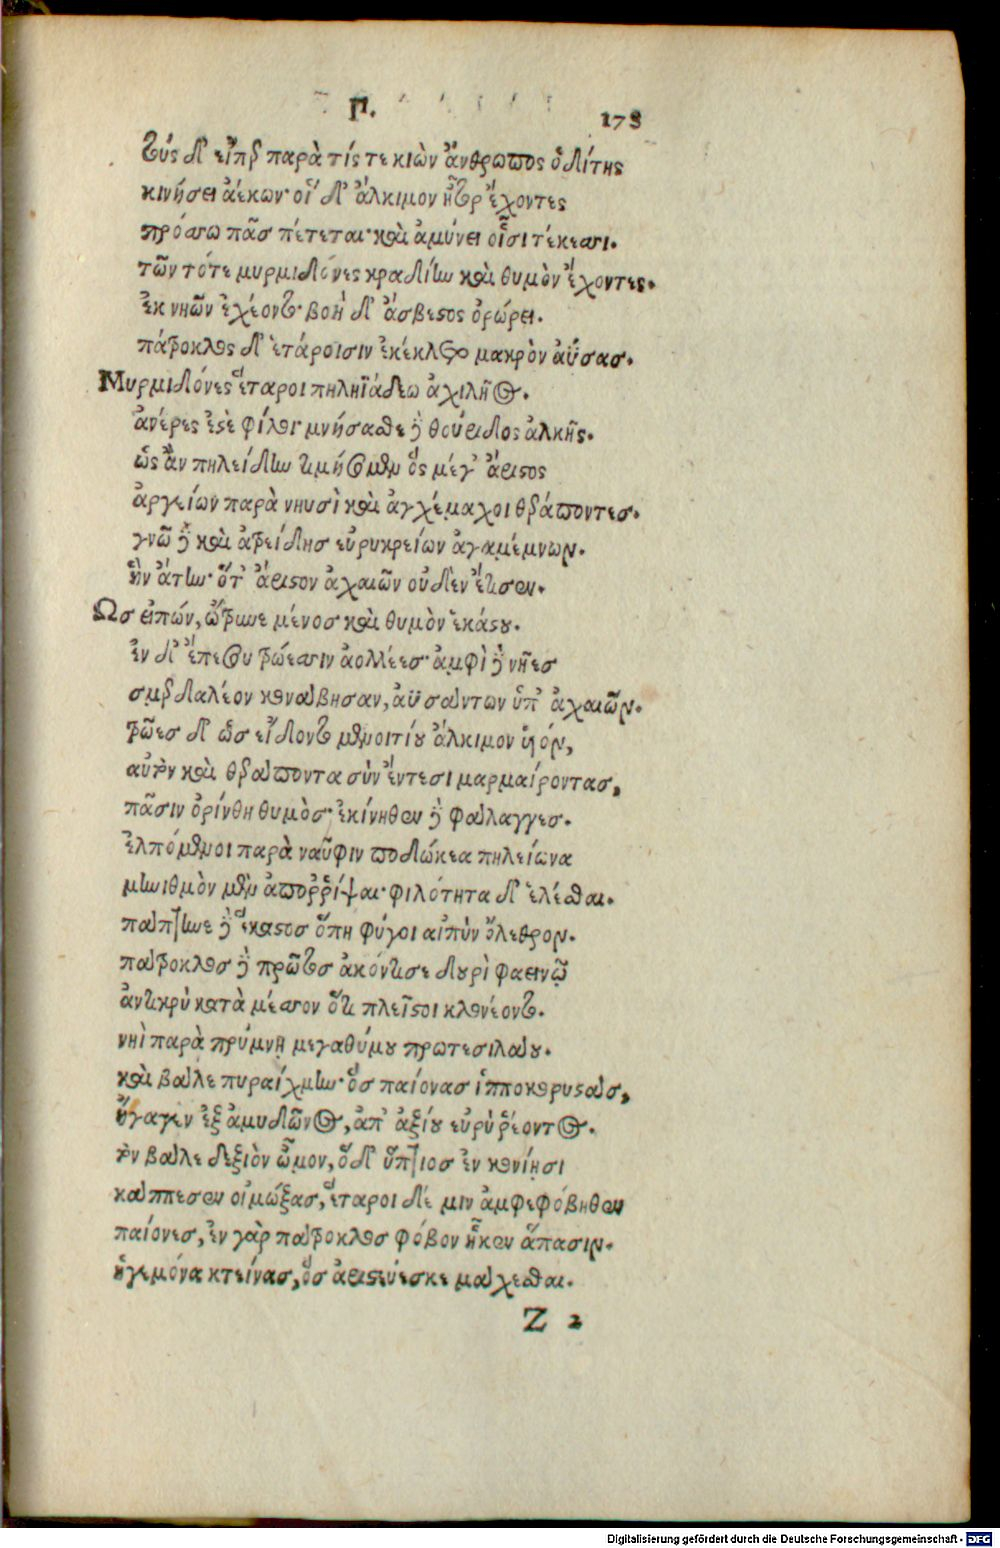 Π. 173
τοὺς δ' εἴπερ παρὰ τίς τε κιὼν ἄνθρωπος ὁδίτης
κινήσει ἀέκων· οἱ δ' ἄλκιμον ἦτορ ἔχοντες
πρόσσω πᾶσ πέτεται· καὶ ἀμύνει οἷσι τέκεσσι.
τῶν τότε μυρμιδόνες κραδίην καὶ θυμὸν ἔχοντες.
ἐκ νηῶν ἐχέοντο· βοὴ δ' ἄσβεστος ὀρώρει.
πάτροκλος δ' ἑτάροισιν ἐκέκλετο μακρὸν ἀΰσας.
Μυρμιδόνες ἕταροι πηληϊάδεω ἀχιλῆος.
ἀνέρες ἐστὲ φίλοι μνήσασθε δὲ θούριδος ἀλκῆς.
ὡς ἂν πηλείδην τιμήσομεν ὃς μέγ' ἄριστος
ἀργείων παρὰ νηυσὶ καὶ ἀγχέμαχοι θεράποντες.
γνῷ δὲ καὶ ἀτρείδησ εὐρυκρείων ἀγαμέμνων.
ἣν ἄτην· ὅτ' ἄριστον ἀχαιῶν οὐδὲν ἔτισεν.
Ὣσ εἰπών, ὤτρυνε μένοσ καὶ θυμὸν ἑκάστου.
ἐν δ' ἔπεσον τρώεσσιν ἀολλέεσ· ἀμφὶ δὲ νῆεσ
σμερδαλέον κονάβησαν, ἀϋσάντων ὑπ' ἀχαιῶν.
τρῶεσ δ' ὡσ εἴδοντο μενοιτίου ἄλκιμον υἱόν,
αὐτὸν καὶ θεράποντα σὺν ἔντεσι μαρμαίροντασ,
πᾶσιν ὀρίνθη θυμὸσ· ἐκίνηθεν δὲ φάλαγγεσ.
ἐλπόμενοι παρὰ ναῦφιν ποδώκεα πηλείωνα
μηνιθμὸν μὲν ἀπορρίψαι· φιλότητα δ' ἑλέσθαι.
πάπτηνε δὲ ἕκαστοσ ὅπη φύγοι αἰπὺν ὄλεθρον.
πάτροκλοσ δὲ πρῶτοσ ἀκόντισε δουρὶ φαεινῷ
ἀντικρὺ κατὰ μέσσον ὅτι πλεῖστοι κλονέοντο.
νηὶ παρὰ πρύμνῃ μεγαθύμου πρωτεσιλάου.
καὶ βάλε πυραίχμην· ὃσ παίονασ ἱπποκορυστάσ,
ἤγαγεν ἐξ ἀμυδῶνος, ἀπ' ἀξίου εὐρὺ ῥέοντος.
τὸν βάλε δεξιὸν ὦμον, ὁ δ' ὕπτιοσ ἐν κονίῃσι
κάππεσεν οἰμώξας, ἕταροι δέ μιν ἀμφεφόβηθεν
παίονεσ, ἐν γὰρ πάτροκλοσ φόβον ἧκεν ἅπασιν.
ἡγεμόνα κτείνας, ὃσ ἀριστεύεσκε μάχεσθαι.
Z 2
Digitalisierung gefördert durch die Deutsche Forschungsgemeinschaft - DFG